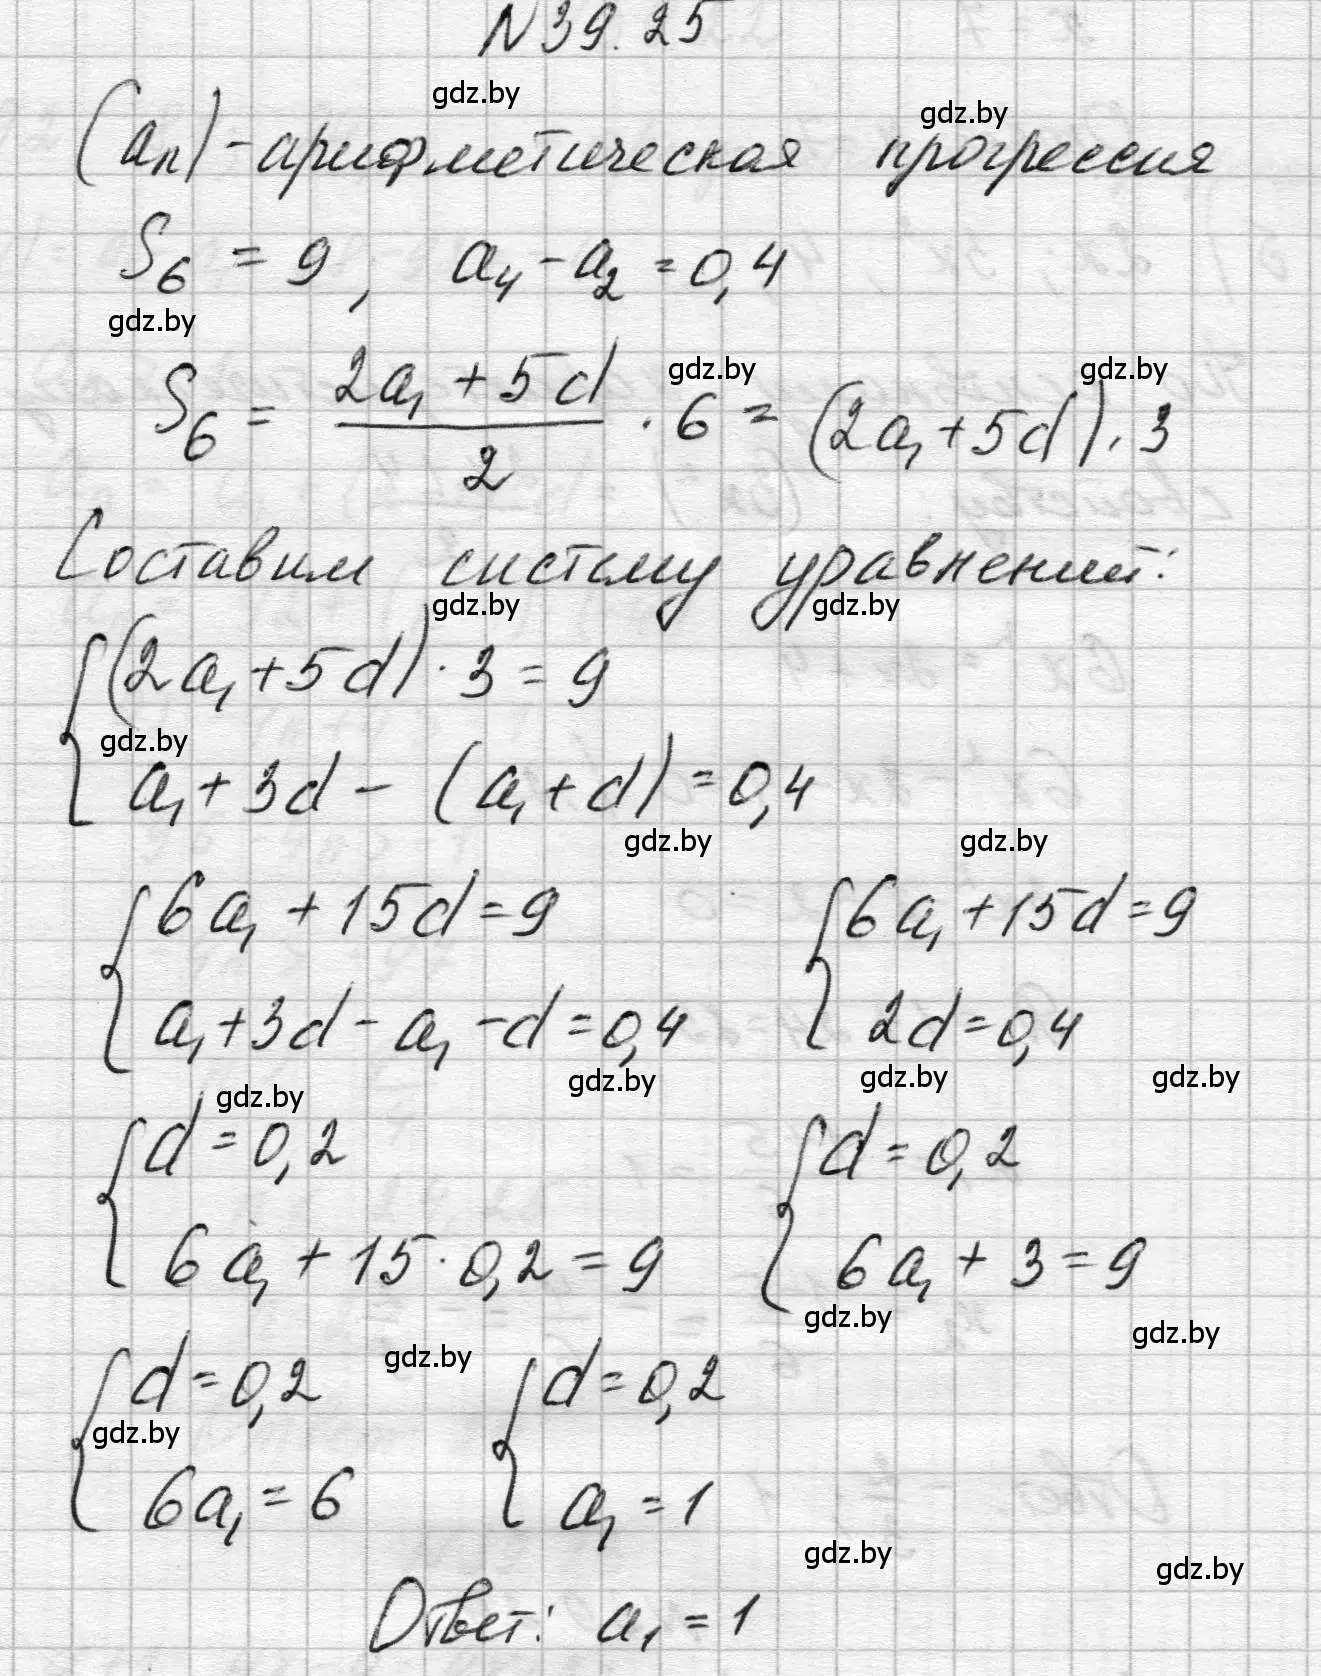 N 39.25
gdz.by
gdz.by
(aₙ) - арифметическая прогрессия
S₆ = 9, a₄ - a₂ = 0,4
gdz.by
gdz.by gdz.by
S₆ = (2a₁ + 5d)/2 · 6 = (2a₁ + 5d) · 3
Составим систему уравнений:
gdz.by gdz.by
{ (2a₁ + 5d) · 3 = 9
gdz.by
a₁ + 3d - (a₁ + d) = 0,4
gdz.by gdz.by
{ 6a₁ + 15d = 9 { 6a₁ + 15d = 9
a₁ + 3d - a₁ - d = 0,4 2d = 0,4
gdz.by gdz.by gdz.by gdz.by
{ d = 0,2 { d = 0,2
6a₁ + 15 · 0,2 = 9 6a₁ + 3 = 9
gdz.by gdz.by
gdz.by
{ d = 0,2 { d = 0,2
gdz.by
6a₁ = 6 a₁ = 1
gdz.by gdz.by
Ответ: a₁ = 1